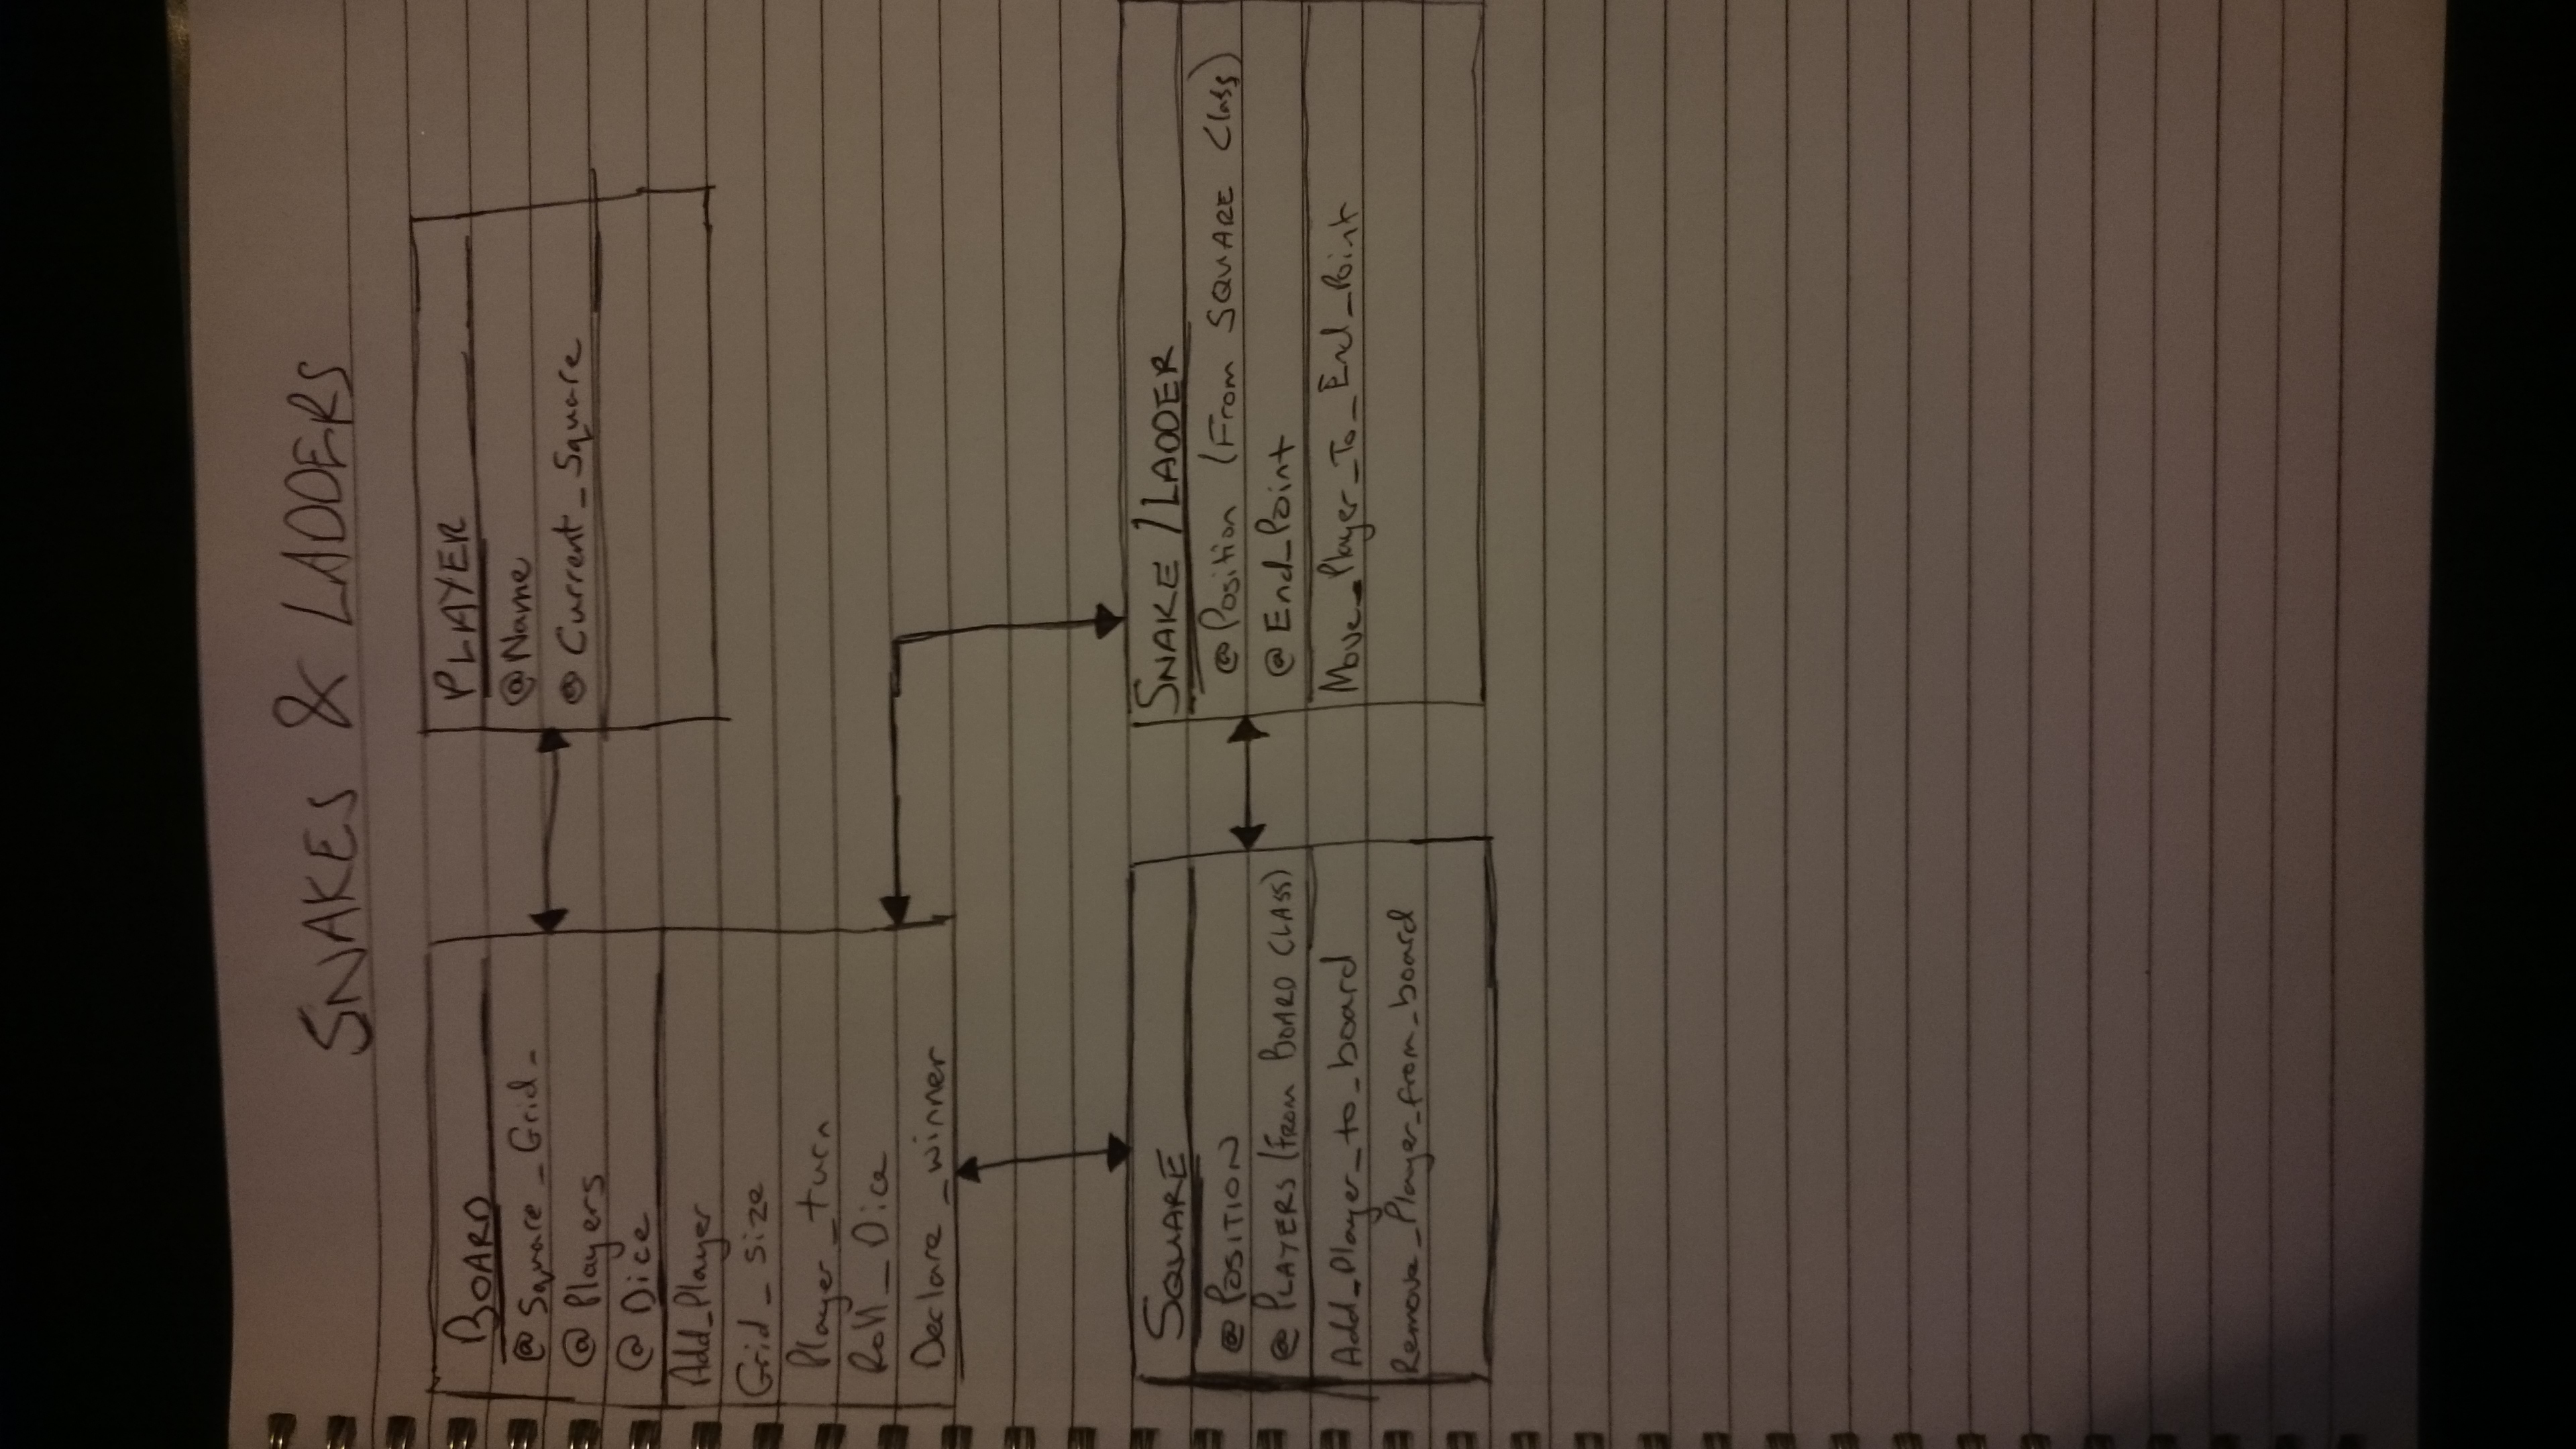 SNAKES & LADDERS
BOARD
@ Square_Grid_
@ Players
@ Dice
Add_Player
Grid_size
Player_turn
Roll_Dice
Declare_winner
PLAYER
@ Name
@ Current_Square
SQUARE
@ POSITION
@ PLAYERS (FROM BOARD CLASS)
Add_Player_to_board
Remove_Player_from_board
SNAKE / LADDER
@ Position (From SQUARE Class)
@ End_Point
Move_Player_To_End_Point